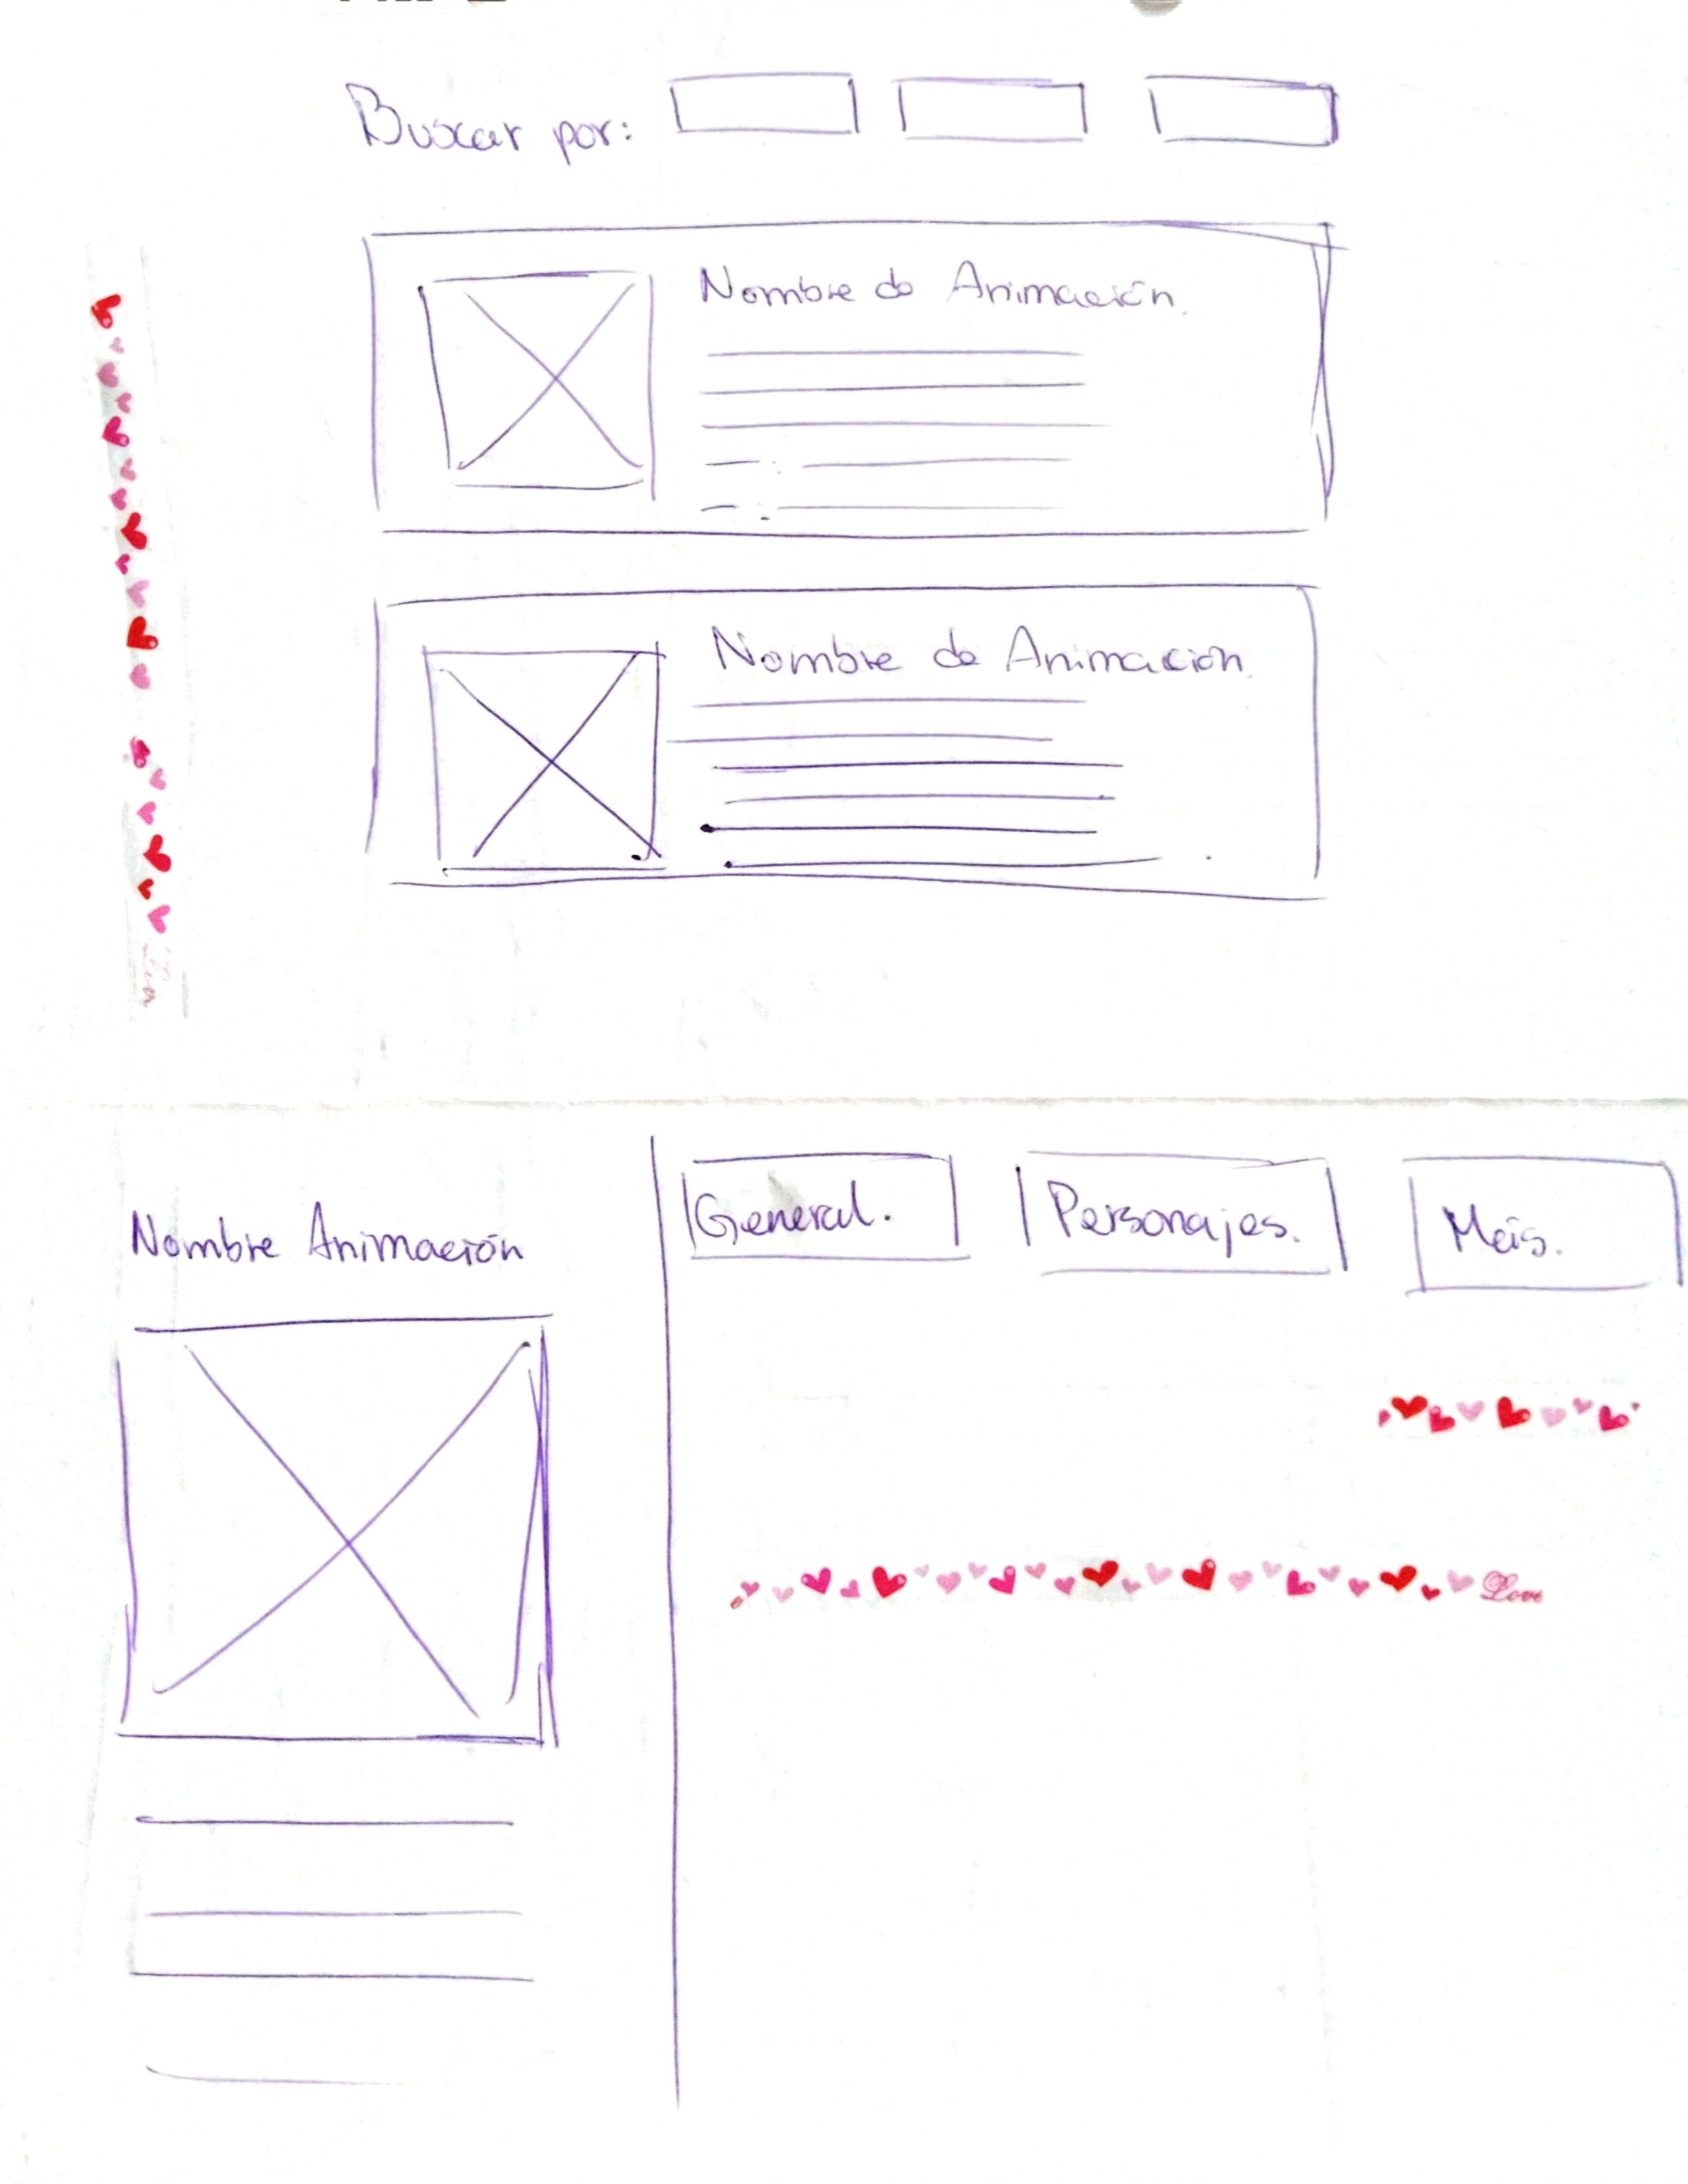 Buscar por:
Nombre de Animación.
Nombre de Animacion.
Nombre Animación
General.
Personajes.
Más.
Love